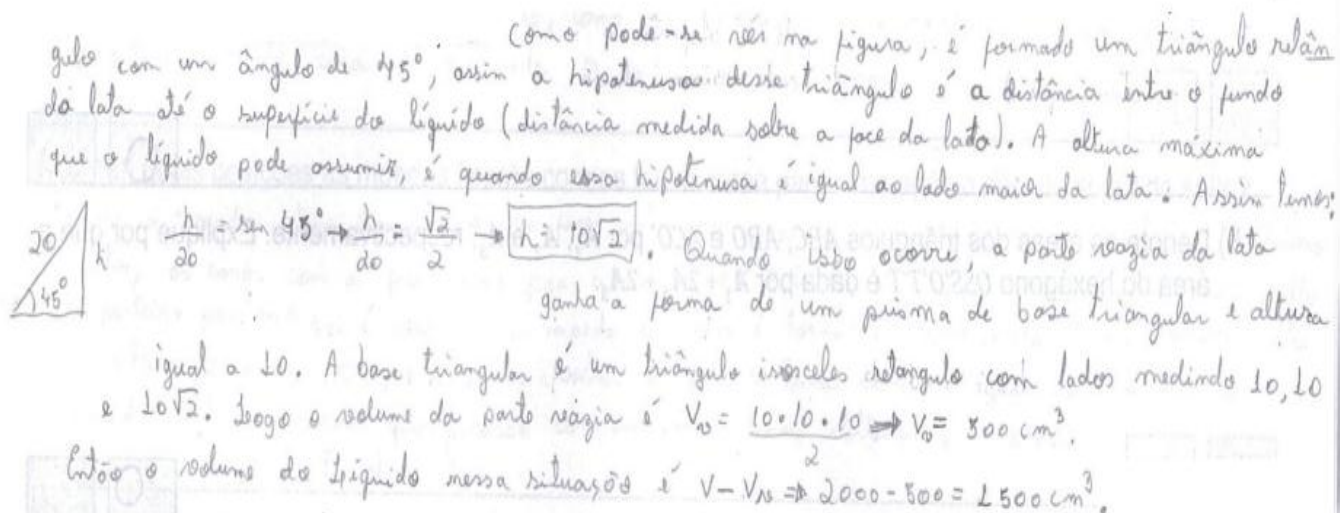 Como pode-se ver na figura, é formado um triângulo retân
gulo com um ângulo de 45°, assim a hipotenusa desse triângulo é a distância entre o fundo
da lata até o superfície do líquido (distância medida sobre a face da lata). A altura máxima
que o líquido pode assumir, é quando essa hipotenusa é igual ao lado maior da lata. Assim temos:
20 h 45° h/20 = sen 45° → h/20 = √2/2 → h = 10√2. Quando isso ocorre, a parte vazia da lata
ganha a forma de um prisma de base triangular e altura
igual a 10. A base triangular é um triângulo isosceles retangulo com lados medindo 10, 10
e 10√2. Logo o volume da parte vázia é Vv = 10·10·10/2 ⇒ Vv = 500 cm³.
Então o volume do líquido nessa situação é V - Vv ⇒ 2000 - 500 = 1500 cm³.